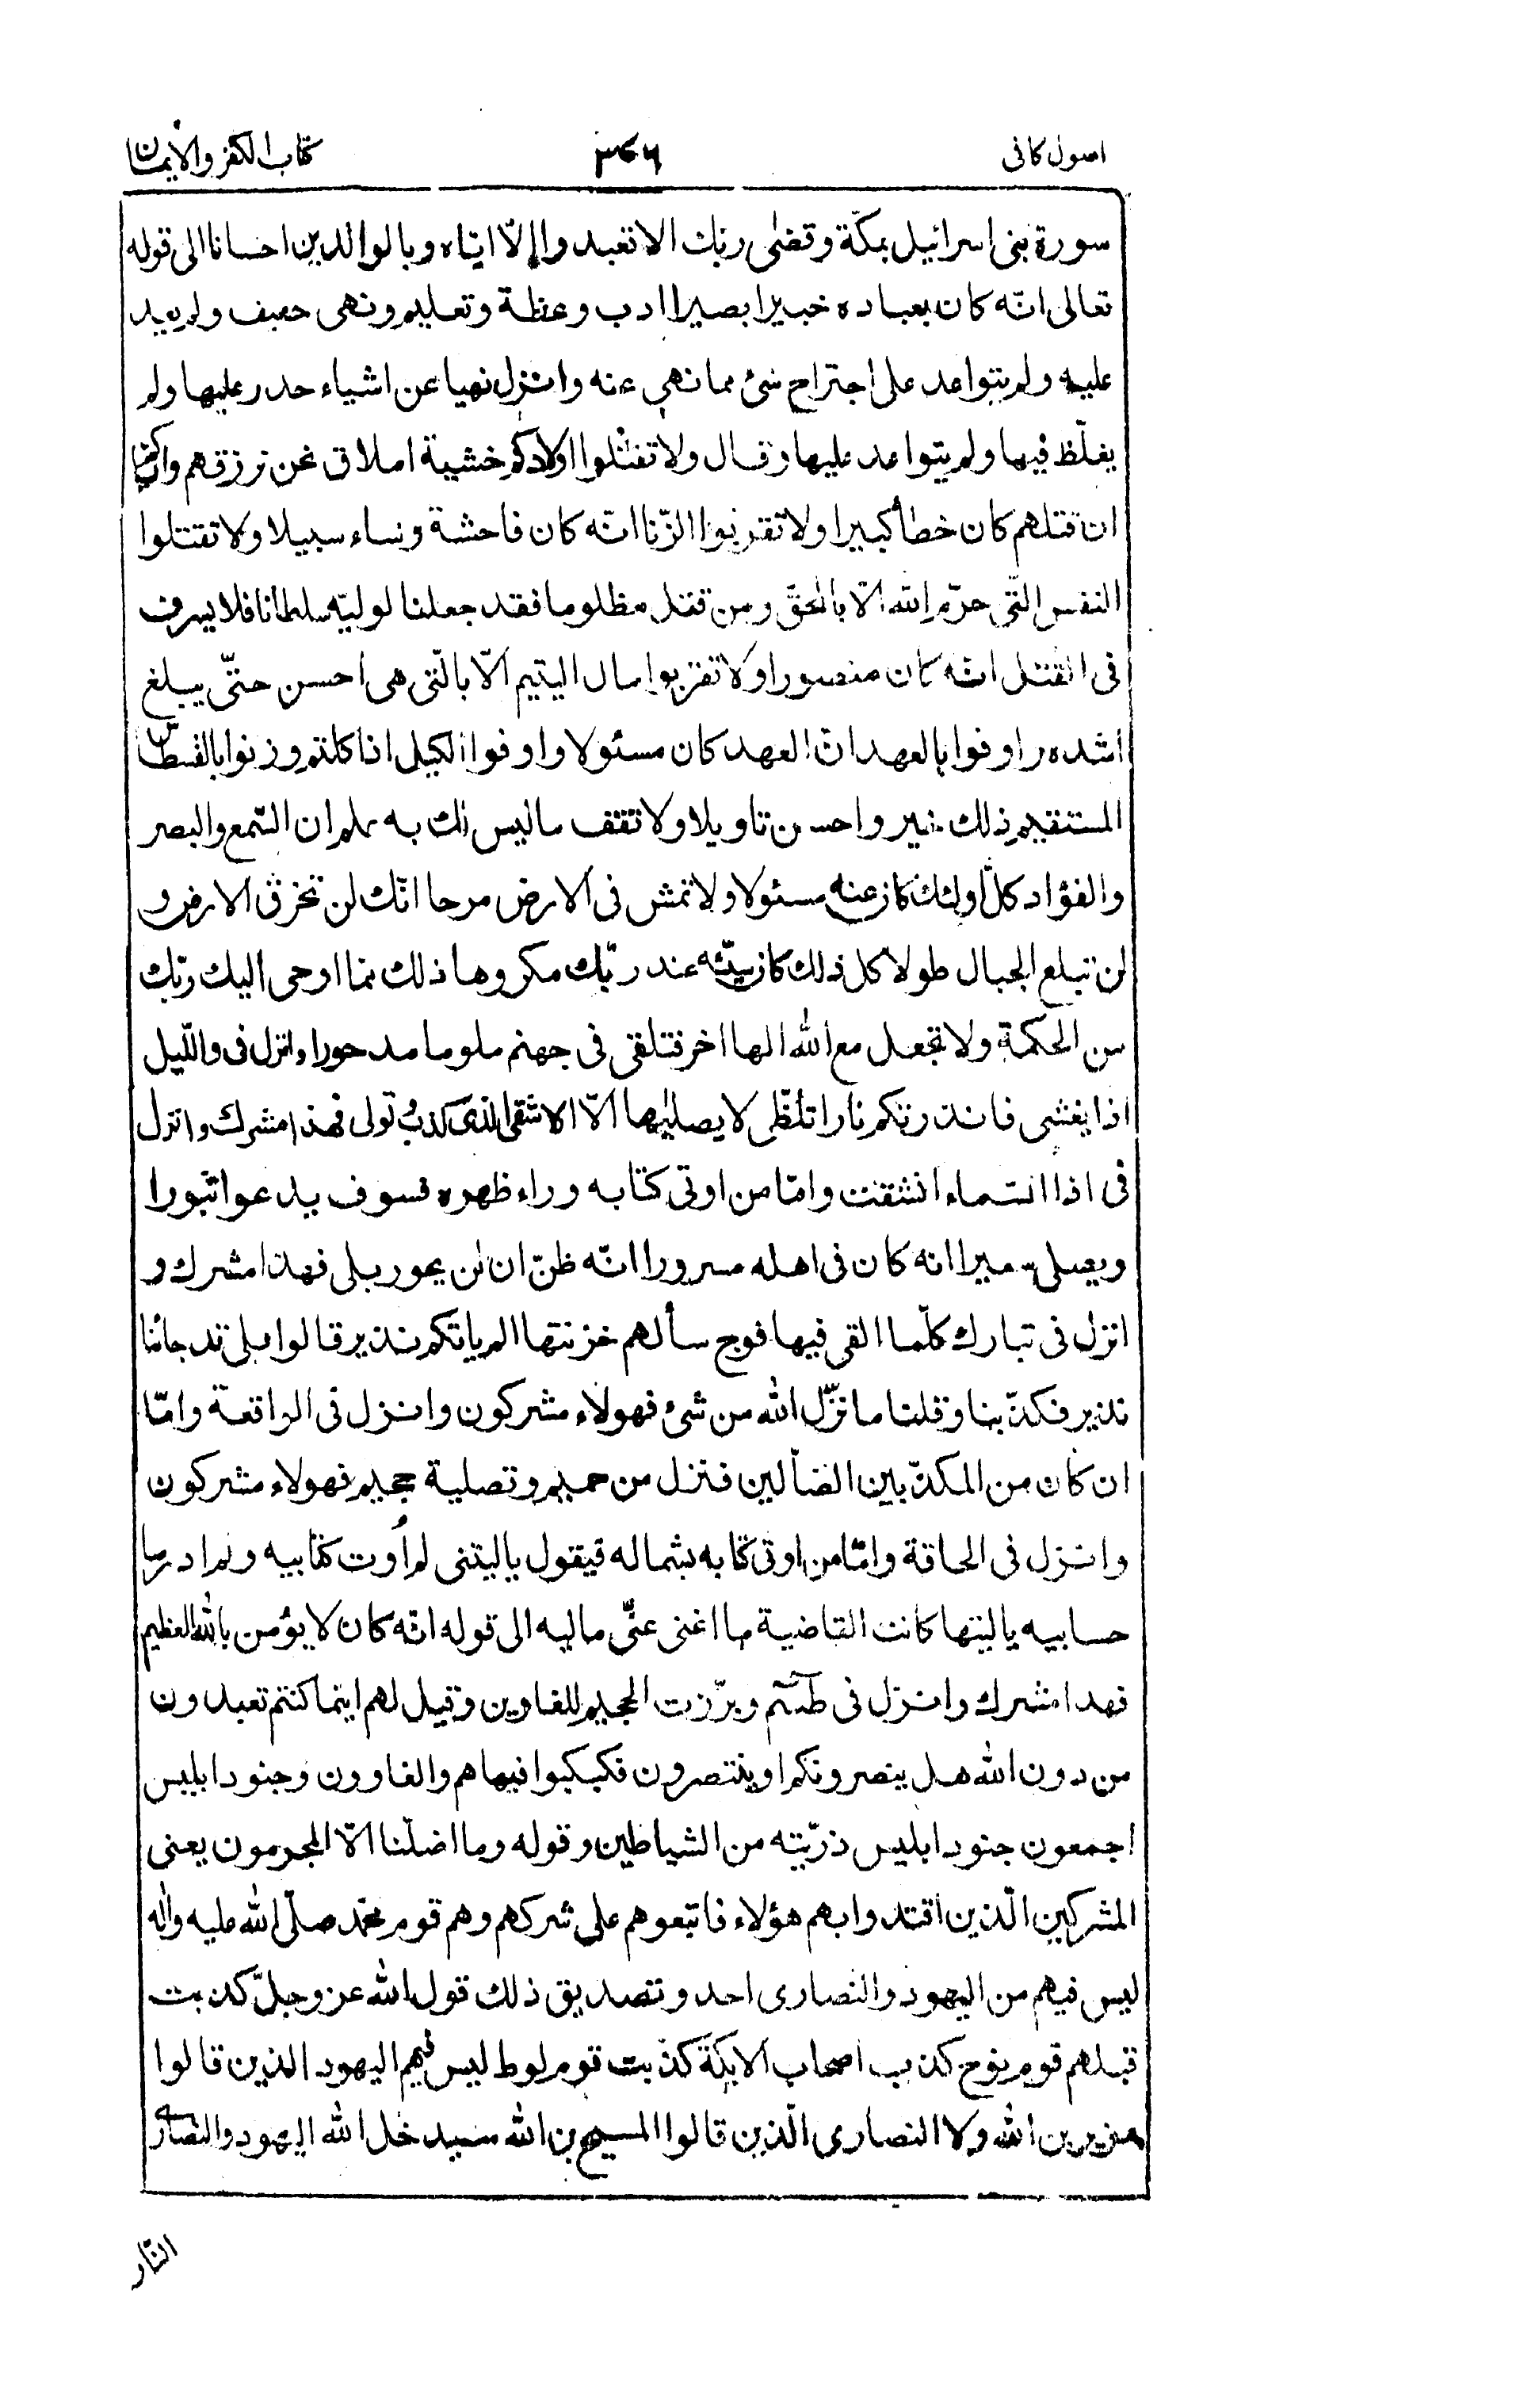 اصول کافی ۳۶۶ کتاب الکفر والایمان
سورة بنی اسرائیل بمکّة وقضٰی ربك الا تعبدوا الّا ایّاه وبالوالدین احسانا الی قوله
تعالی انّه کان بعباده خبیرا بصیرا ادب وعظة وتعلیم ونهی خفیف ولم یعد
علیه ولم یتواعد علی اجتراح شئ مما نهی عنه وانزل نهیا عن اشیاء حذر علیها ولم
یغلّظ فیها ولم یتواعد علیها وقال ولا تقتلوا اولادکم خشیة املاق نحن نرزقهم وایّاکم
ان قتلهم کان خطأ کبیرا ولا تقربوا الزّنا انّه کان فاحشة وساء سبیلا ولا تقتلوا
النفس الّتی حرّم الله الّا بالحقّ ومن قتل مظلوما فقد جعلنا لولیّه سلطانا فلا یسرف
فی القتل انّه کان منصورا ولا تقربوا مال الیتیم الّا بالّتی هی احسن حتّی یبلغ
اشده واوفوا بالعهد انّ العهد کان مسئولا واوفوا الکیل اذا کلتم وزنوا بالقسطاس
المستقیم ذلك خیر واحسن تاویلا ولا تقف ما لیس لك به علم ان السّمع والبصر
والفؤاد کلّ اولئك کان عنه مسئولا ولا تمش فی الارض مرحا انّك لن تخرق الارض و
لن تبلغ الجبال طولا کل ذلك کان سیّئه عند ربّك مکروها ذلك مما اوحی الیك ربّك
من الحکمة ولا تجعل مع الله الها اخر فتلقی فی جهنم ملوما مدحورا وانزل فی واللّیل
اذا یغشی فانذرتکم نارا تلظّی لا یصلیها الّا الاشقی الذی کذب وتولی فهذا مشرك وانزل
فی اذا السّماء انشقت وامّا من اوتی کتابه وراء ظهره فسوف یدعوا ثبورا
ویصلی سعیرا انه کان فی اهله مسرورا انّه ظنّ ان لن یحور بلی فهذا مشرك و
انزل فی تبارك کلّما القی فیها فوج سألهم خزنتها الم یاتکم نذیر قالوا بلی قد جائنا
نذیر فکذّبنا وقلنا ما نزّل الله من شئ فهولاء مشرکون وانزل فی الواقعة وامّا
ان کان من المکذّبین الضالین فنزل من حمیم وتصلیة جحیم فهولاء مشرکون
وانزل فی الحاقة وامّا من اوتی کتابه بشماله فیقول یالیتنی لم أوت کتابیه ولم ادر ما
حسابیه یالیتها کانت القاضیة ما اغنی عنّی مالیه الی قوله انّه کان لا یؤمن بالله العظیم
فهذا مشرك وانزل فی طسٓمٓ وبرّزت الجحیم للغاوین وقیل لهم اینما کنتم تعبدون
من دون الله هل ینصرونکم او ینتصرون فکبکبوا فیها هم والغاوون وجنود ابلیس
اجمعون جنود ابلیس ذرّیته من الشیاطین وقوله وما اضلّنا الّا المجرمون یعنی
المشرکین الّذین اقتدوا بهم هؤلاء فاتبعوهم علی شرکهم وهم قوم محمّد صلّی الله علیه واله
لیس فیهم من الیهود والنصاری احد وتصدیق ذلك قول الله عز وجلّ کذبت
قبلهم قوم نوح کذب اصحاب الایکة کذبت قوم لوط لیس فیهم الیهود الذین قالوا
عزیر بن الله ولا النصاری الّذین قالوا المسیح بن الله سیدخل الله الیهود والنصاری
النّار